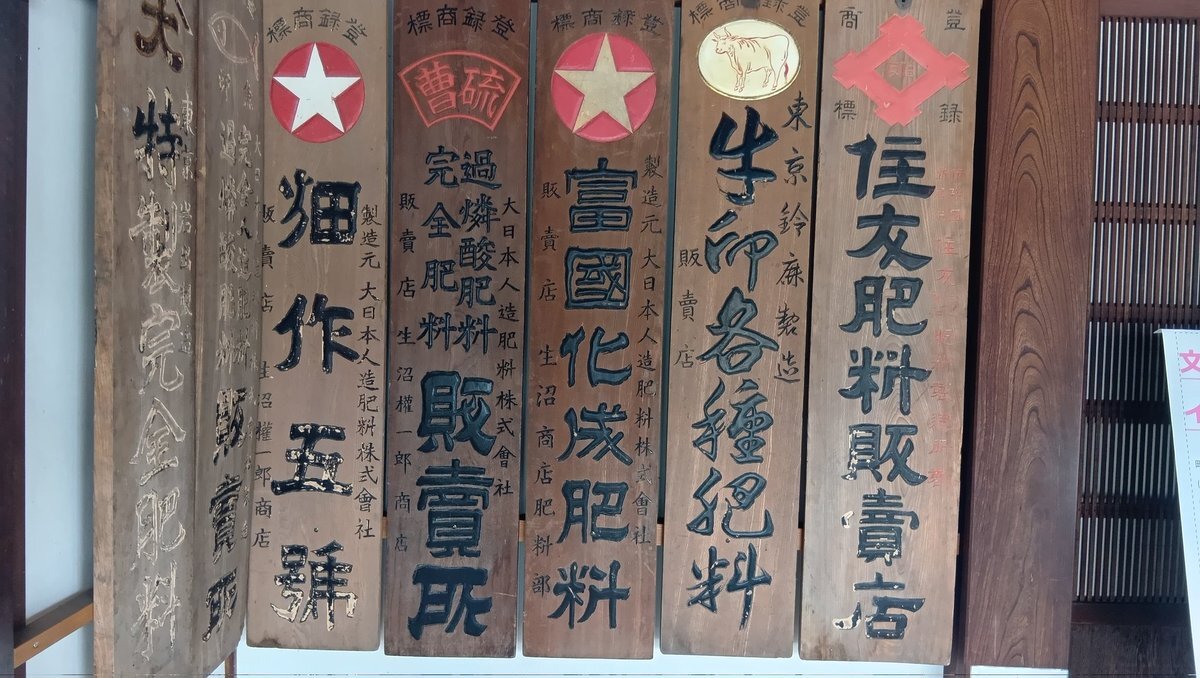 登録商標
住友肥料販賣店
登録商標
東京鈴鹿製造
牛印各種肥料
販賣店
登録商標
製造元 大日本人造肥料株式會社
富國化成肥料
販賣店 生沼商店肥料部
登録商標
硫曹
大日本人造肥料株式會社
過燐酸肥料
完全肥料
販賣所
販賣店 生沼權一郎商店
登録商標
製造元 大日本人造肥料株式會社
畑作五號
販賣店 生沼權一郎商店
販賣所
特製完全肥料
文
イ